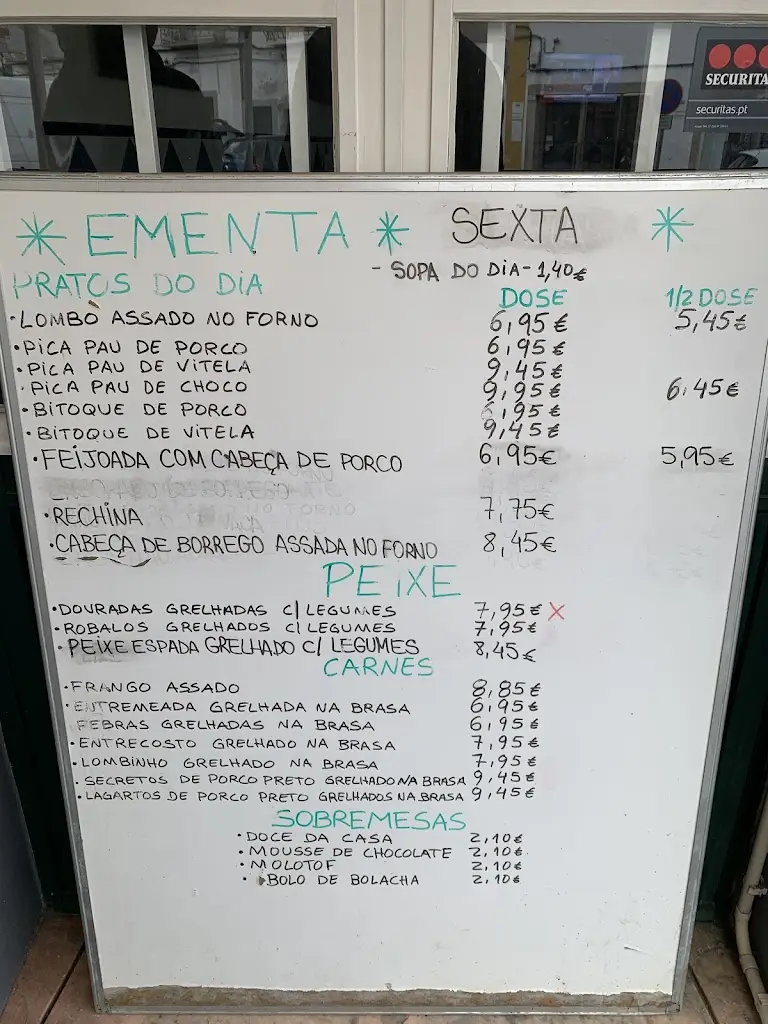 SECURITA
securitas.pt
* EMENTA * SEXTA *
- SOPA DO DIA - 1,40€
PRATOS DO DIA DOSE 1/2 DOSE
• LOMBO ASSADO NO FORNO 6,95€ 5,45€
• PICA PAU DE PORCO 6,95€
• PICA PAU DE VITELA 9,45€
• PICA PAU DE CHOCO 9,95€ 6,45€
• BITOQUE DE PORCO 6,95€
• BITOQUE DE VITELA 9,45€
• FEIJOADA COM CABEÇA DE PORCO 6,95€ 5,95€
• RECHINA 7,75€
• CABEÇA DE BORREGO ASSADA NO FORNO 8,45€
PEIXE
• DOURADAS GRELHADAS C/ LEGUMES 7,95€ X
• ROBALOS GRELHADOS C/ LEGUMES 7,95€
• PEIXE ESPADA GRELHADO C/ LEGUMES 8,45€
CARNES
• FRANGO ASSADO 8,85€
• ENTREMEADA GRELHADA NA BRASA 6,95€
FEBRAS GRELHADAS NA BRASA 6,95€
• ENTRECOSTO GRELHADO NA BRASA 7,95€
• LOMBINHO GRELHADO NA BRASA 7,95€
• SECRETOS DE PORCO PRETO GRELHADO NA BRASA 9,45€
• LAGARTOS DE PORCO PRETO GRELHADOS NA BRASA 9,45€
SOBREMESAS
• DOCE DA CASA 2,10€
• MOUSSE DE CHOCOLATE 2,10€
• MOLOTOF 2,10€
• BOLO DE BOLACHA 2,10€